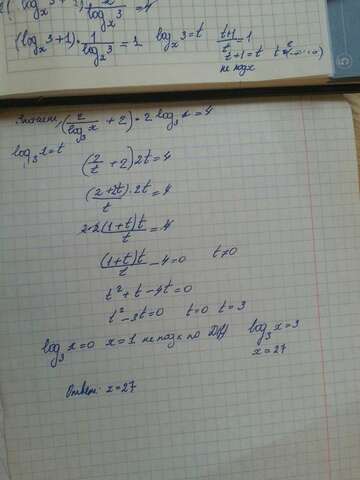 (log_x 3 + 1) · 1/log_x 3 = 1   log_x 3 = t   (t+1)/t = 1
t+1 = t
не подх
Значит, (2/log_3 x + 2) · 2 log_3 x = 4
log_3 x = t   (2/t + 2) 2t = 4
(2+2t)/t · 2t = 4
2·2(1+t)t/t = 4
(1+t)t/t − 4 = 0   t ≠ 0
t² + t − 4t = 0
t² − 3t = 0   t = 0   t = 3
log_3 x = 0   x = 1 не подх по   log_3 x = 3
x = 27
Ответ: x = 27